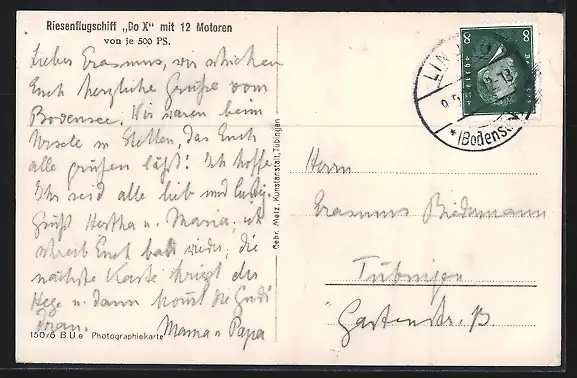 Riesenflugschiff „Do X" mit 12 Motoren
von je 500 PS.
Lieber Erasmus, wir schicken
Euch herzliche Grüße vom
Bodensee. Wir waren beim
in Stetten, das Euch
alle grüßen läßt! Ich hoffe
Ihr seid alle lieb und lustig.
Grüßt Hertha u. Maria, ich
schreib Euch bald wieder, die
nächste Karte kriegt der
u. dann kommt die
dran.
Mama u Papa
150/6 B U e Photographiekarte
Gebr. Metz, Kunstanstalt, Tübingen
8 8
LINDAU
(Bodensee)
Herrn
Erasmus Biedermann
Tübingen
Gartenstr.